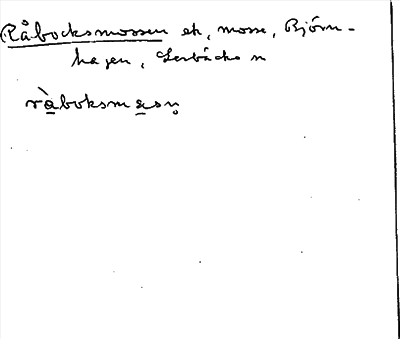 Råbocksmossen ek, mosse, Björn-
hagen, Lerbäcks sn
ràboksmɑsn̥